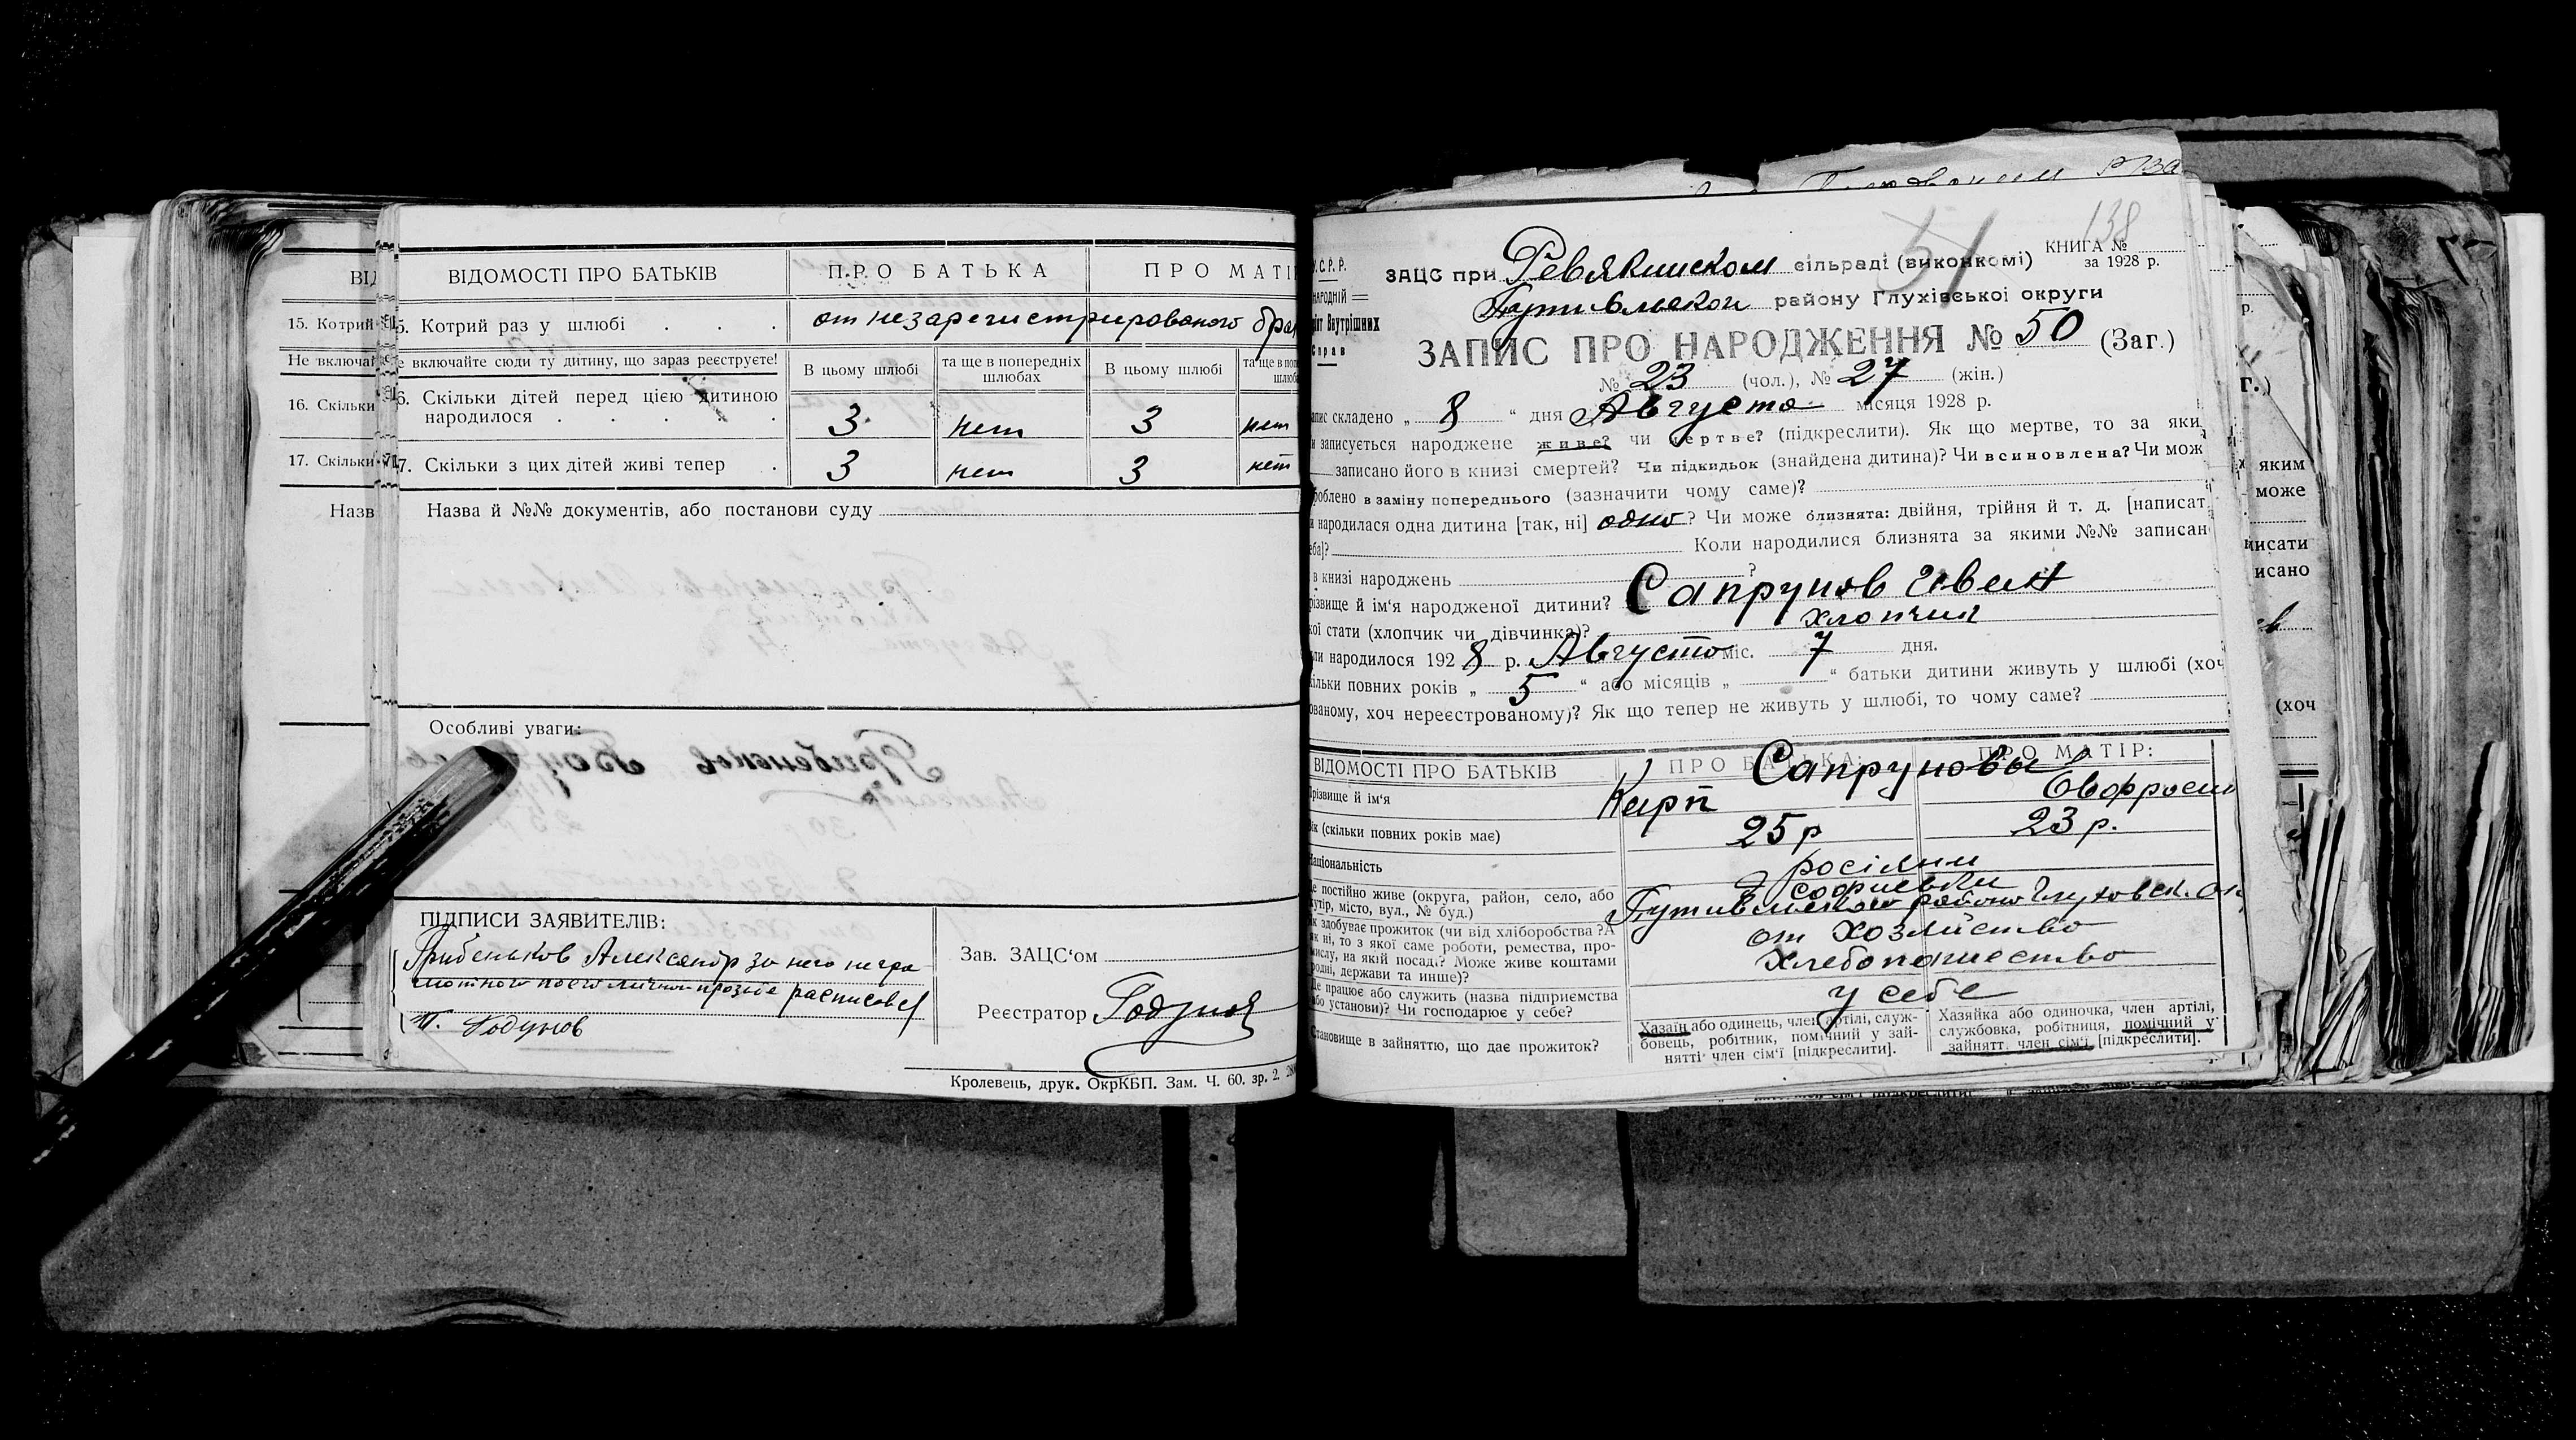 ВІДОМОСТІ ПРО БАТЬКІВ
ПРО БАТЬКА
ПРО МАТІ
15. Котрий
5. Котрий раз у шлюбі
от незарегистрированого бра
Не включа
е включайте сюди ту дитину, що зараз реєструєте!
В цьому шлюбі
та ще в попередніх шлюбах
В цьому шлюбі
16. Скільки
6. Скільки дітей перед цією дитиною
народилося
3 нет 3 нет
17. Скільки
7. Скільки з цих дітей живі тепер
3 нет 3 нет
Назв
Назва й №№ документів, або постанови суду
Особливі уваги:
ПІДПИСИ ЗАЯВИТЕЛІВ:
Грибеньков Александр за него негра
мотного по его личной прозбе расписовся
Т. Годунов
Зав. ЗАЦС'ом
Реєстратор Годунов
Кролевець, друк. ОкрКБП. Зам. Ч. 60. зр. 2.
138
51
КНИГА №
за 1928 р.
У.С.Р.Р.
НАРОДНІЙ
Внутрішних
Справ
ЗАЦС при Ревякинском сільраді (виконкомі)
Путивльской району Глухівської округи
ЗАПИС ПРО НАРОДЖЕННЯ № 50 (Заг.)
№ 23 (чол.), № 27 (жін.)
апис складено „ 8 “ дня Августа місяця 1928 р.
и записується народжене живе? чи мертве? (підкреслити). Як що мертве, то за яки
записано його в книзі смертей? Чи підкидьок (знайдена дитина)? Чи всиновлена? Чи мож
роблено в заміну попереднього (зазначити чому саме)?
и народилася одна дитина [так, ні] одно? Чи може близнята: двійня, трійня й т. д. [написат
еба]? Коли народилися близнята за якими №№ записан
в книзі народжень ?
різвище й ім'я народженої дитини? Сапрунов Иван
кої стати (хлопчик чи дівчинка)? хлопчик
ли народилося 1928 р. Августа міс. 7 дня.
кільки повних років „ 5 “ або місяців „ “ батьки дитини живуть у шлюбі (хоч
ованому, хоч нереєстрованому)? Як що тепер не живуть у шлюбі, то чому саме?
ВІДОМОСТІ ПРО БАТЬКІВ
ПРО БАТЬКА:
ПРО МАТІР:
Сапруновы
різвище й ім'я
Карп
ік (скільки повних років має)
25 р
23 р.
Національність
росіяни
е постійно живе (округа, район, село, або
хутір, місто, вул., № буд.)
Путивльского района Глуховск. Ок
як здобуває прожиток (чи від хліборобства? А
як ні, то з якої саме роботи, ремества, про-
мислу, на якій посаді? Може живе коштами
родні, держави та инше)?
от хозяйство
хлебопашество
Де працює або служить (назва підприємства
або установи)? Чи господарює у себе?
у себе
Становище в зайняттю, що дає прожиток?
Хазаїн або одинець, член артілі, служ-
бовець, робітник, помічний у зай-
нятті член сім'ї [підкреслити].
Хазяйка або одиночка, член артілі,
службовка, робітниця, помічний у
зайнятт. член сім'ї [підкреслити].
яким
може
исати
исано
(хоч